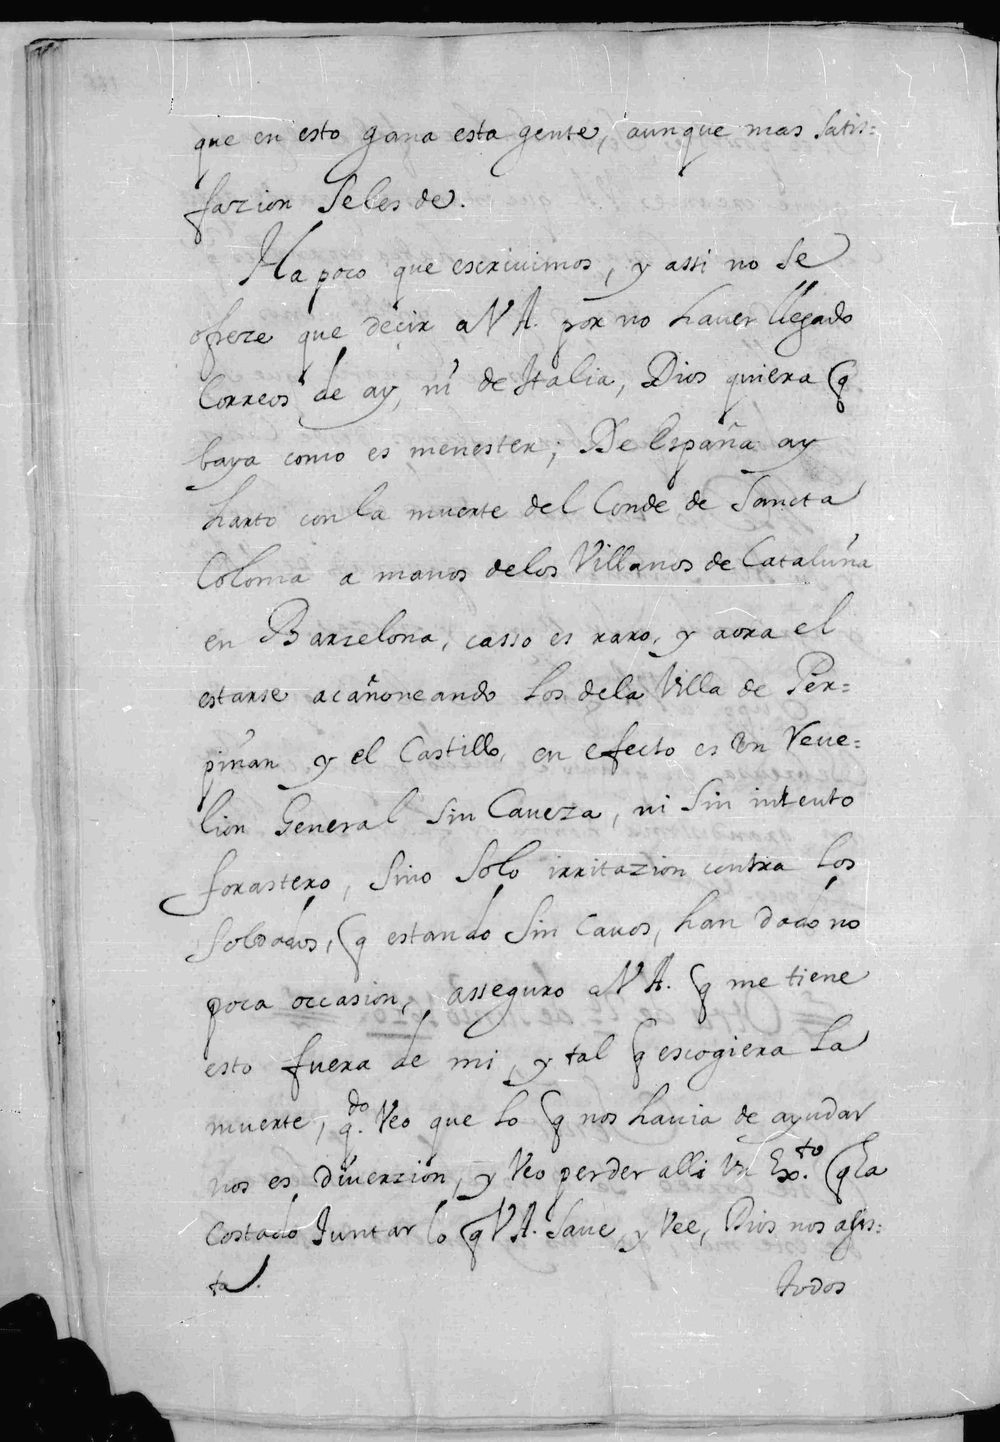 que en esto gana esta gente, aunque mas satis=
fazion se les de.
Ha poco que escriuimos, y assi no se
ofreze que deçir a V A. por no hauer llegado
Correos de ay, ni de Italia, Dios quiera q
baya como es menester; De España ay
harto con la muerte del Conde de Sancta
Coloma a manos delos Villanos de Cataluña
en Barzelona, casso es raro, y aora el
estarse acañoneando los dela Villa de Per=
piñan y el Castillo, en efecto es Vn Reue=
lion General sin Caueza, ni sin intento
forastero, sino solo irritazion contra los
soldados, q estando sin Cauos, han dado no
poca occasion, asseguro a V A. q me tiene
esto fuera de mi, y tal q escogiera la
muerte, q.do Veo que lo q nos hauia de ayudar
nos es diuerzion, y Veo perder alli Vn Ex.to q ha
Costado Juntar lo q V A. saue, y Vee, Dios nos asis=
ta.
todos